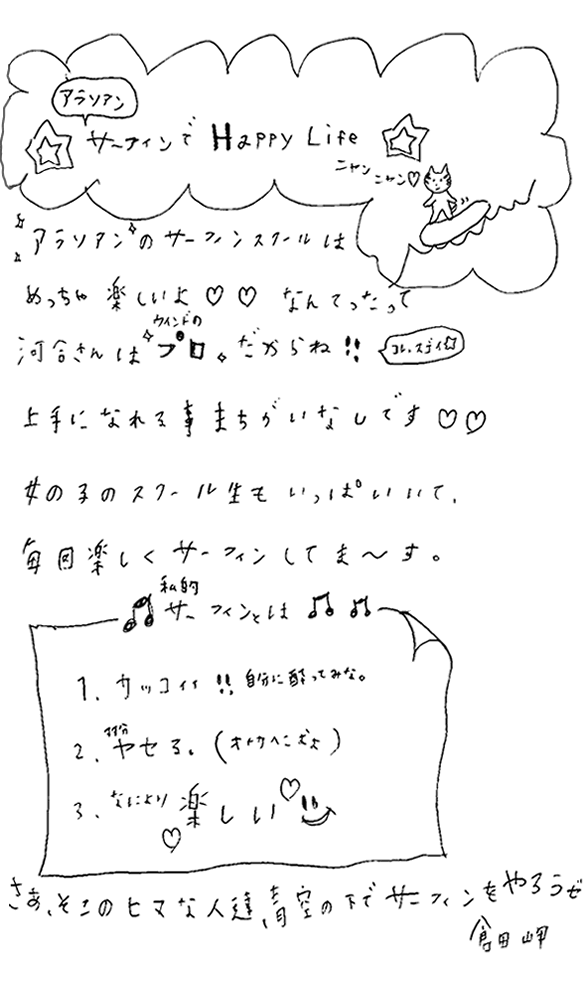 アラソアン
サーフィンで Happy Life
ニャン ニャン♡
"アラソアン"のサーフィンスクールは
めっちゃ楽しいよ♡♡ なんてったって
ウインドの
河合さんは"プロ"だからね!!
上手になれる事まちがいなしです♡♡
女の子のスクール生もいっぱいいて、
毎回楽しくサーフィンしてま〜す。
私的
サーフィンとは
1. カッコイイ!! 自分に酔ってみな。
2. ヤセる。
3. なにより楽しい
さあ、そこのヒマな人達、青空の下でサーフィンをやろうぜ
倉田 岬